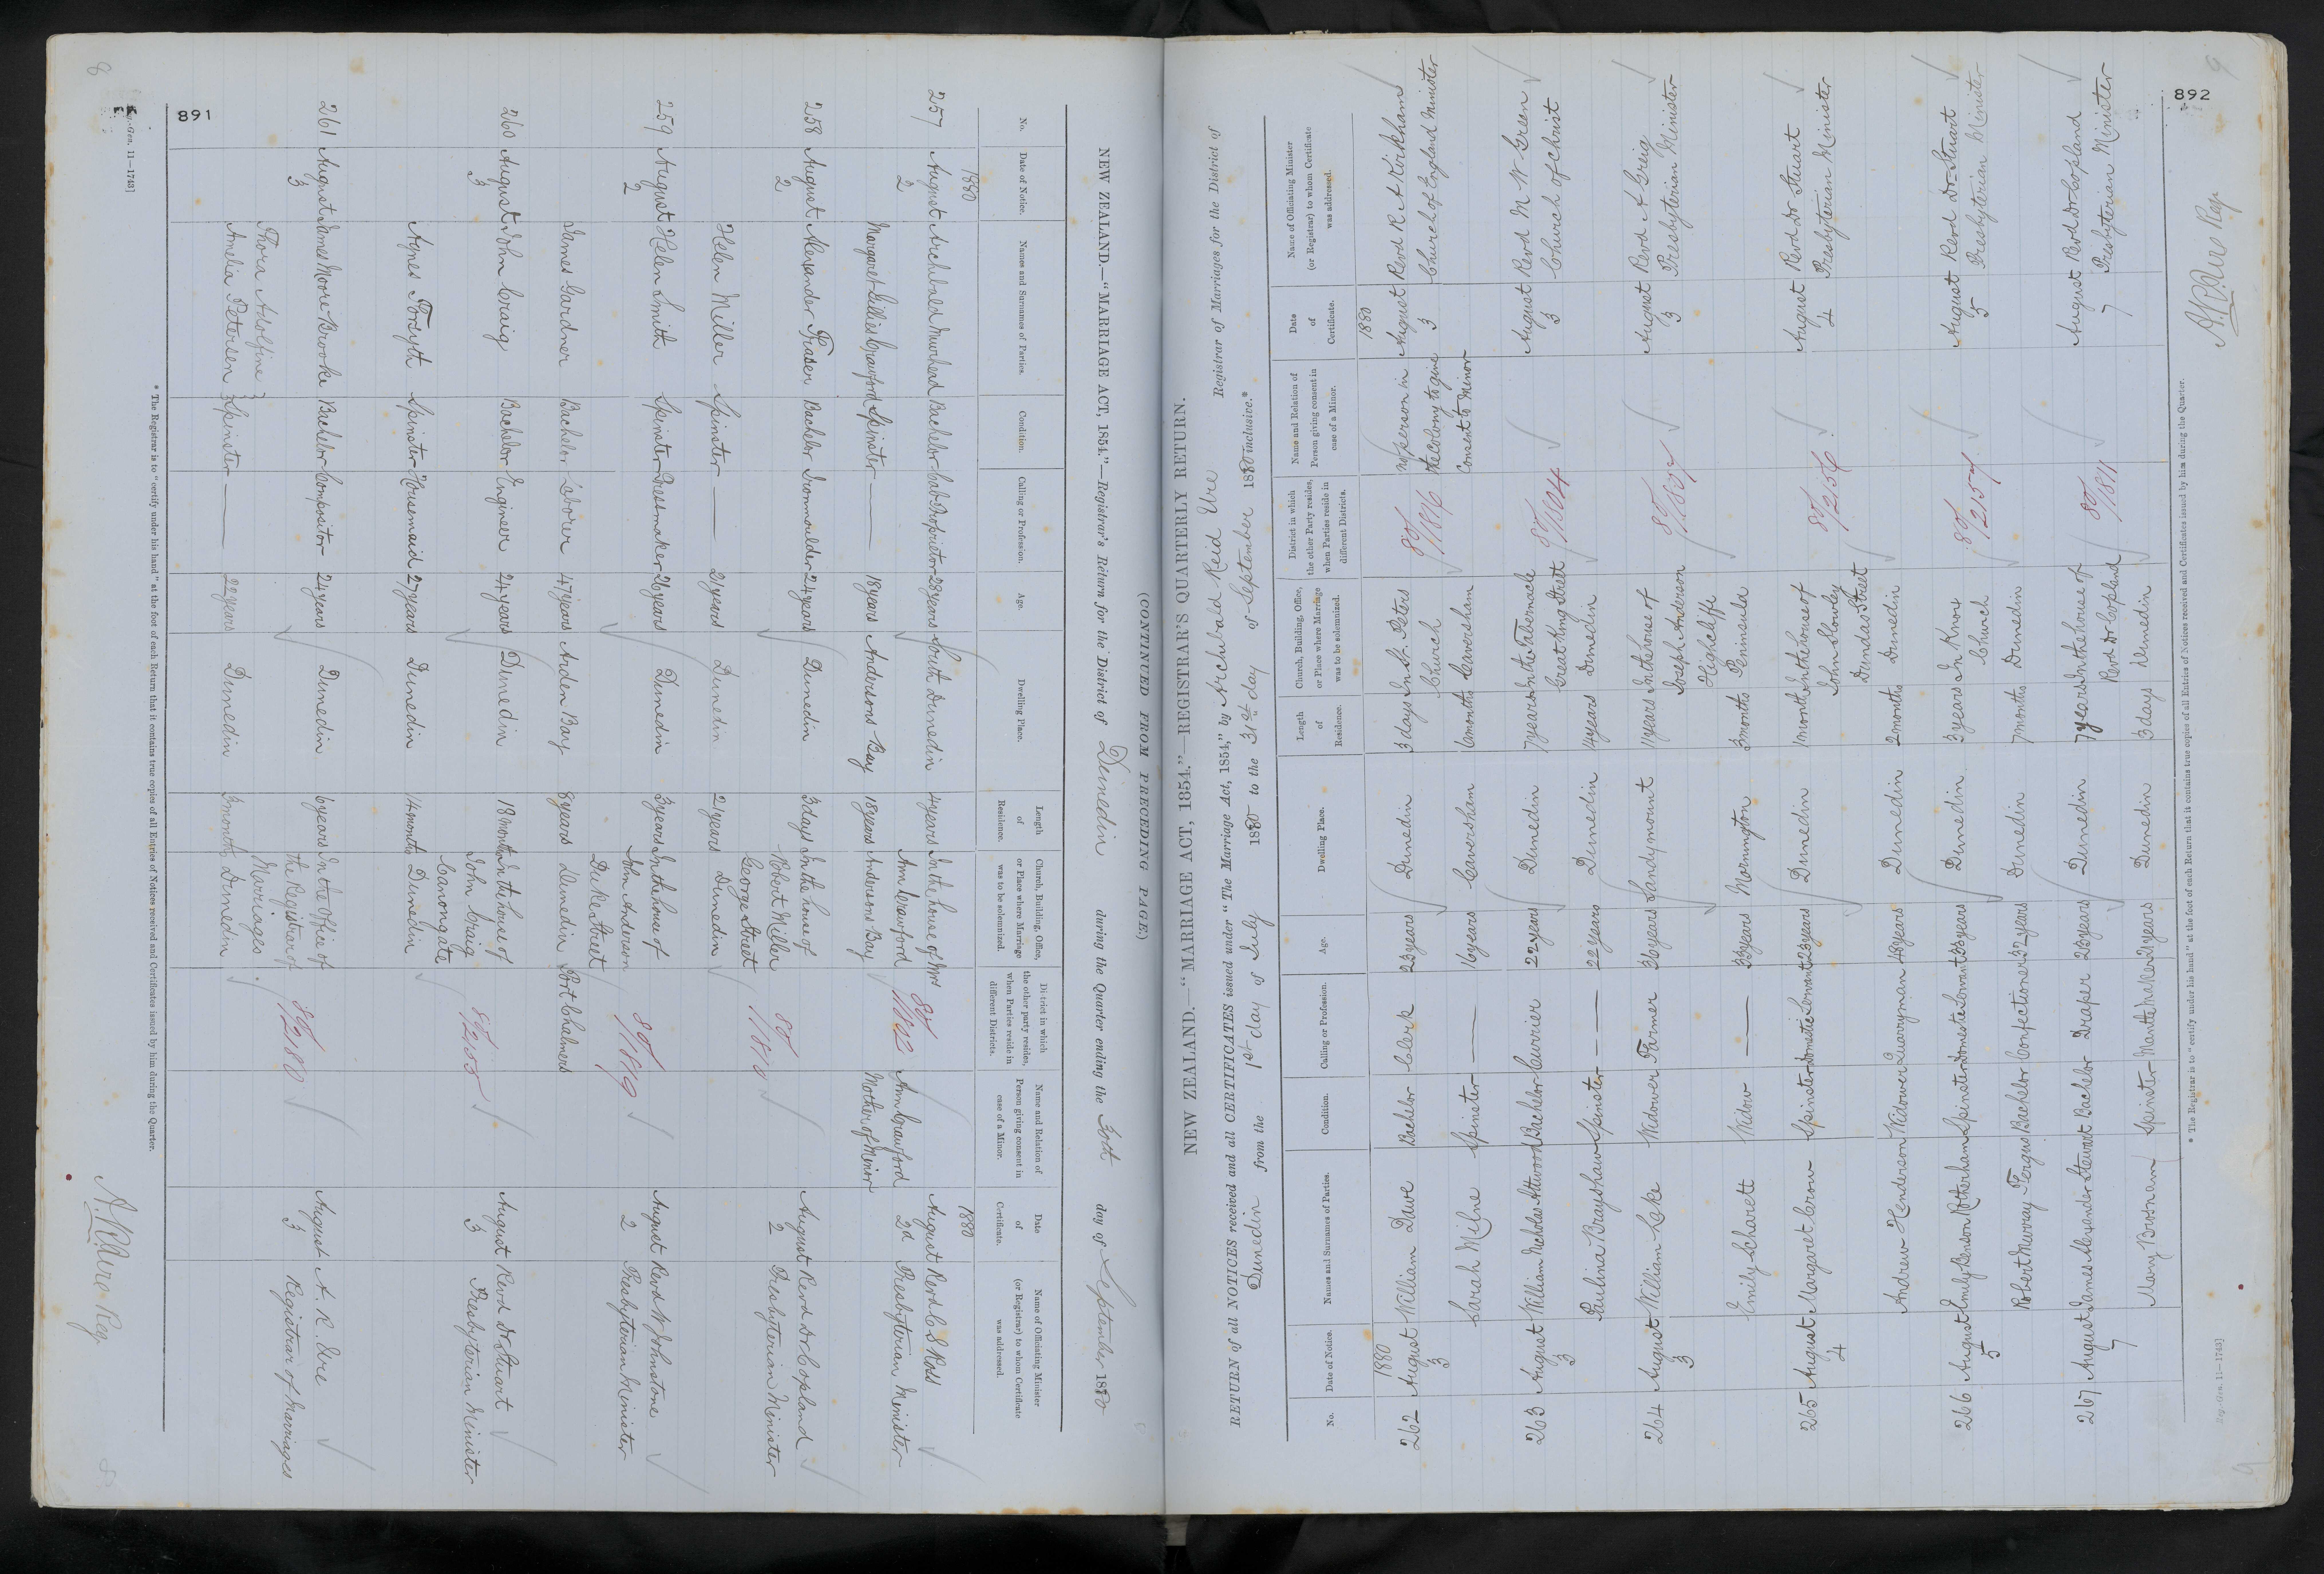 891
(CONTINUED FROM PRECEDING PAGE.)
NEW ZEALAND.—"MARRIAGE ACT, 1854."—Registrar's Return for the District of Dunedin during the Quarter ending the 30th day of September 1880
No. Date of Notice. Names and Surnames of Parties. Condition. Calling or Profession. Age. Dwelling Place. Length of Residence. Church, Building, Office, or Place where Marriage was to be solemnized. District in which the other party resides, when Parties reside in different Districts. Name and Relation of Person giving consent in case of a Minor. Date of Certificate. Name of Officiating Minister (or Registrar) to whom Certificate was addressed.
1880 1880
257 August 2 Archibald Muirhead Bachelor Cab Proprietor 28 years South Dunedin 4 years In the house of Mrs Ann Crawford 80/1802 Ann Crawford August 2d Revd C S Ross
Margaret Gillies Crawford Spinster — 18 years Andersons Bay 18 years Andersons Bay Mother of Minor Presbyterian Minister
258 August 2 Alexander Fraser Bachelor Ironmoulder 24 years Dunedin 3 days In the house of Robert Miller George Street 80/1810 August 2 Revd Dr Copland
Helen Miller Spinster — 21 years Dunedin 21 years Dunedin Presbyterian Minister
259 August 2 Helen Smith Spinster Dressmaker 26 years Dunedin 3 years In the house of John Anderson Duke Street 80/1819 August 2 Revd W Johnstone
James Gardner Bachelor Laborer 47 years Arden Bay 8 years Dunedin Port Chalmers Presbyterian Minister
260 August 3 John Craig Bachelor Engineer 24 years Dunedin 18 months In the house of John Craig Canongate 80/2155 August 3 Revd Dr Stuart
Agnes Forsyth Spinster Housemaid 27 years Dunedin 14 months Dunedin Presbyterian Minister
261 August 3 James Moore Brooke Bachelor Compositor 24 years Dunedin 6 years In the Office of the Registrar of Marriages 80/2180 August 3 A. R. Ure
Thora Adolfine Amelia Petersen } Spinster — 22 years Dunedin 3 months Dunedin Registrar of Marriages
* The Registrar is to "certify under his hand" at the foot of each Return that it contains true copies of all Entries of Notices received and Certificates issued by him during the Quarter.
Gen. 11—1743]
A. R. Ure Reg
8
892
9
NEW ZEALAND.—"MARRIAGE ACT, 1854."—REGISTRAR'S QUARTERLY RETURN.
RETURN of all NOTICES received and all CERTIFICATES issued under "The Marriage Act, 1854," by Archibald Reid Ure Registrar of Marriages for the District of
Dunedin from the 1st day of July 1880 to the 31st day of September 1880 inclusive.*
No. Date of Notice. Names and Surnames of Parties. Condition. Calling or Profession. Age. Dwelling Place. Length of Residence. Church, Building, Office, or Place where Marriage was to be solemnized. District in which the other Party resides, when Parties reside in different Districts. Name and Relation of Person giving consent in case of a Minor. Date of Certificate. Name of Officiating Minister (or Registrar) to whom Certificate was addressed.
1880 1880
262 August 3 William Dawe Bachelor Clerk 23 years Dunedin 3 days In St. Peters Church 80/1816 No person in the colony to give August 3 Revd R A Kirkham
Sarah Milne Spinster — 16 years Caversham 6 months Caversham Consent to Minor Church of England Minister
263 August 3 William Nicholas Attwood Bachelor Currier 22 years Dunedin 7 years In the Tabernacle Great King Street August 3 Revd M W Green
Paulina Brayshaw Spinster — 22 years Dunedin 4 years Dunedin Church of Christ
264 August 3 William Leke Widower Farmer 36 years Sandymount 11 years In the house of Joseph Anderson Highcliffe August 3 Revd A Greig
Emily Scharett Widow — 33 years Mornington 3 months Peninsula Presbyterian Minister
265 August 4 Margaret Carow Spinster Domestic Servant 23 years Dunedin 1 month In the house of John Slowley Dundas Street 80/2156 August 4 Revd Dr Stuart
Andrew Henderson Widower Quarryman 48 years Dunedin 2 months Dunedin Presbyterian Minister
266 August 5 Emily Benson Rotherham Spinster Domestic Servant 33 years Dunedin 3 years In Knox Church 80/2157 August 5 Revd Dr Stuart
Robert Murray Fergus Bachelor Confectioner 32 years Dunedin 7 months Dunedin Presbyterian Minister
267 August 7 James Alexander Stewart Bachelor Draper 25 years Dunedin 7 years In the house of Revd Dr Copland 80/1811 August 7 Revd Dr Copland
Mary Brosnan Spinster Mantle Maker 21 years Dunedin 3 days Dunedin Presbyterian Minister
* The Registrar is to "certify under his hand" at the foot of each Return that it contains true copies of all Entries of Notices received and Certificates issued by him during the Quarter.
Reg.-Gen. 11—1743]
A. R. Ure Reg
9